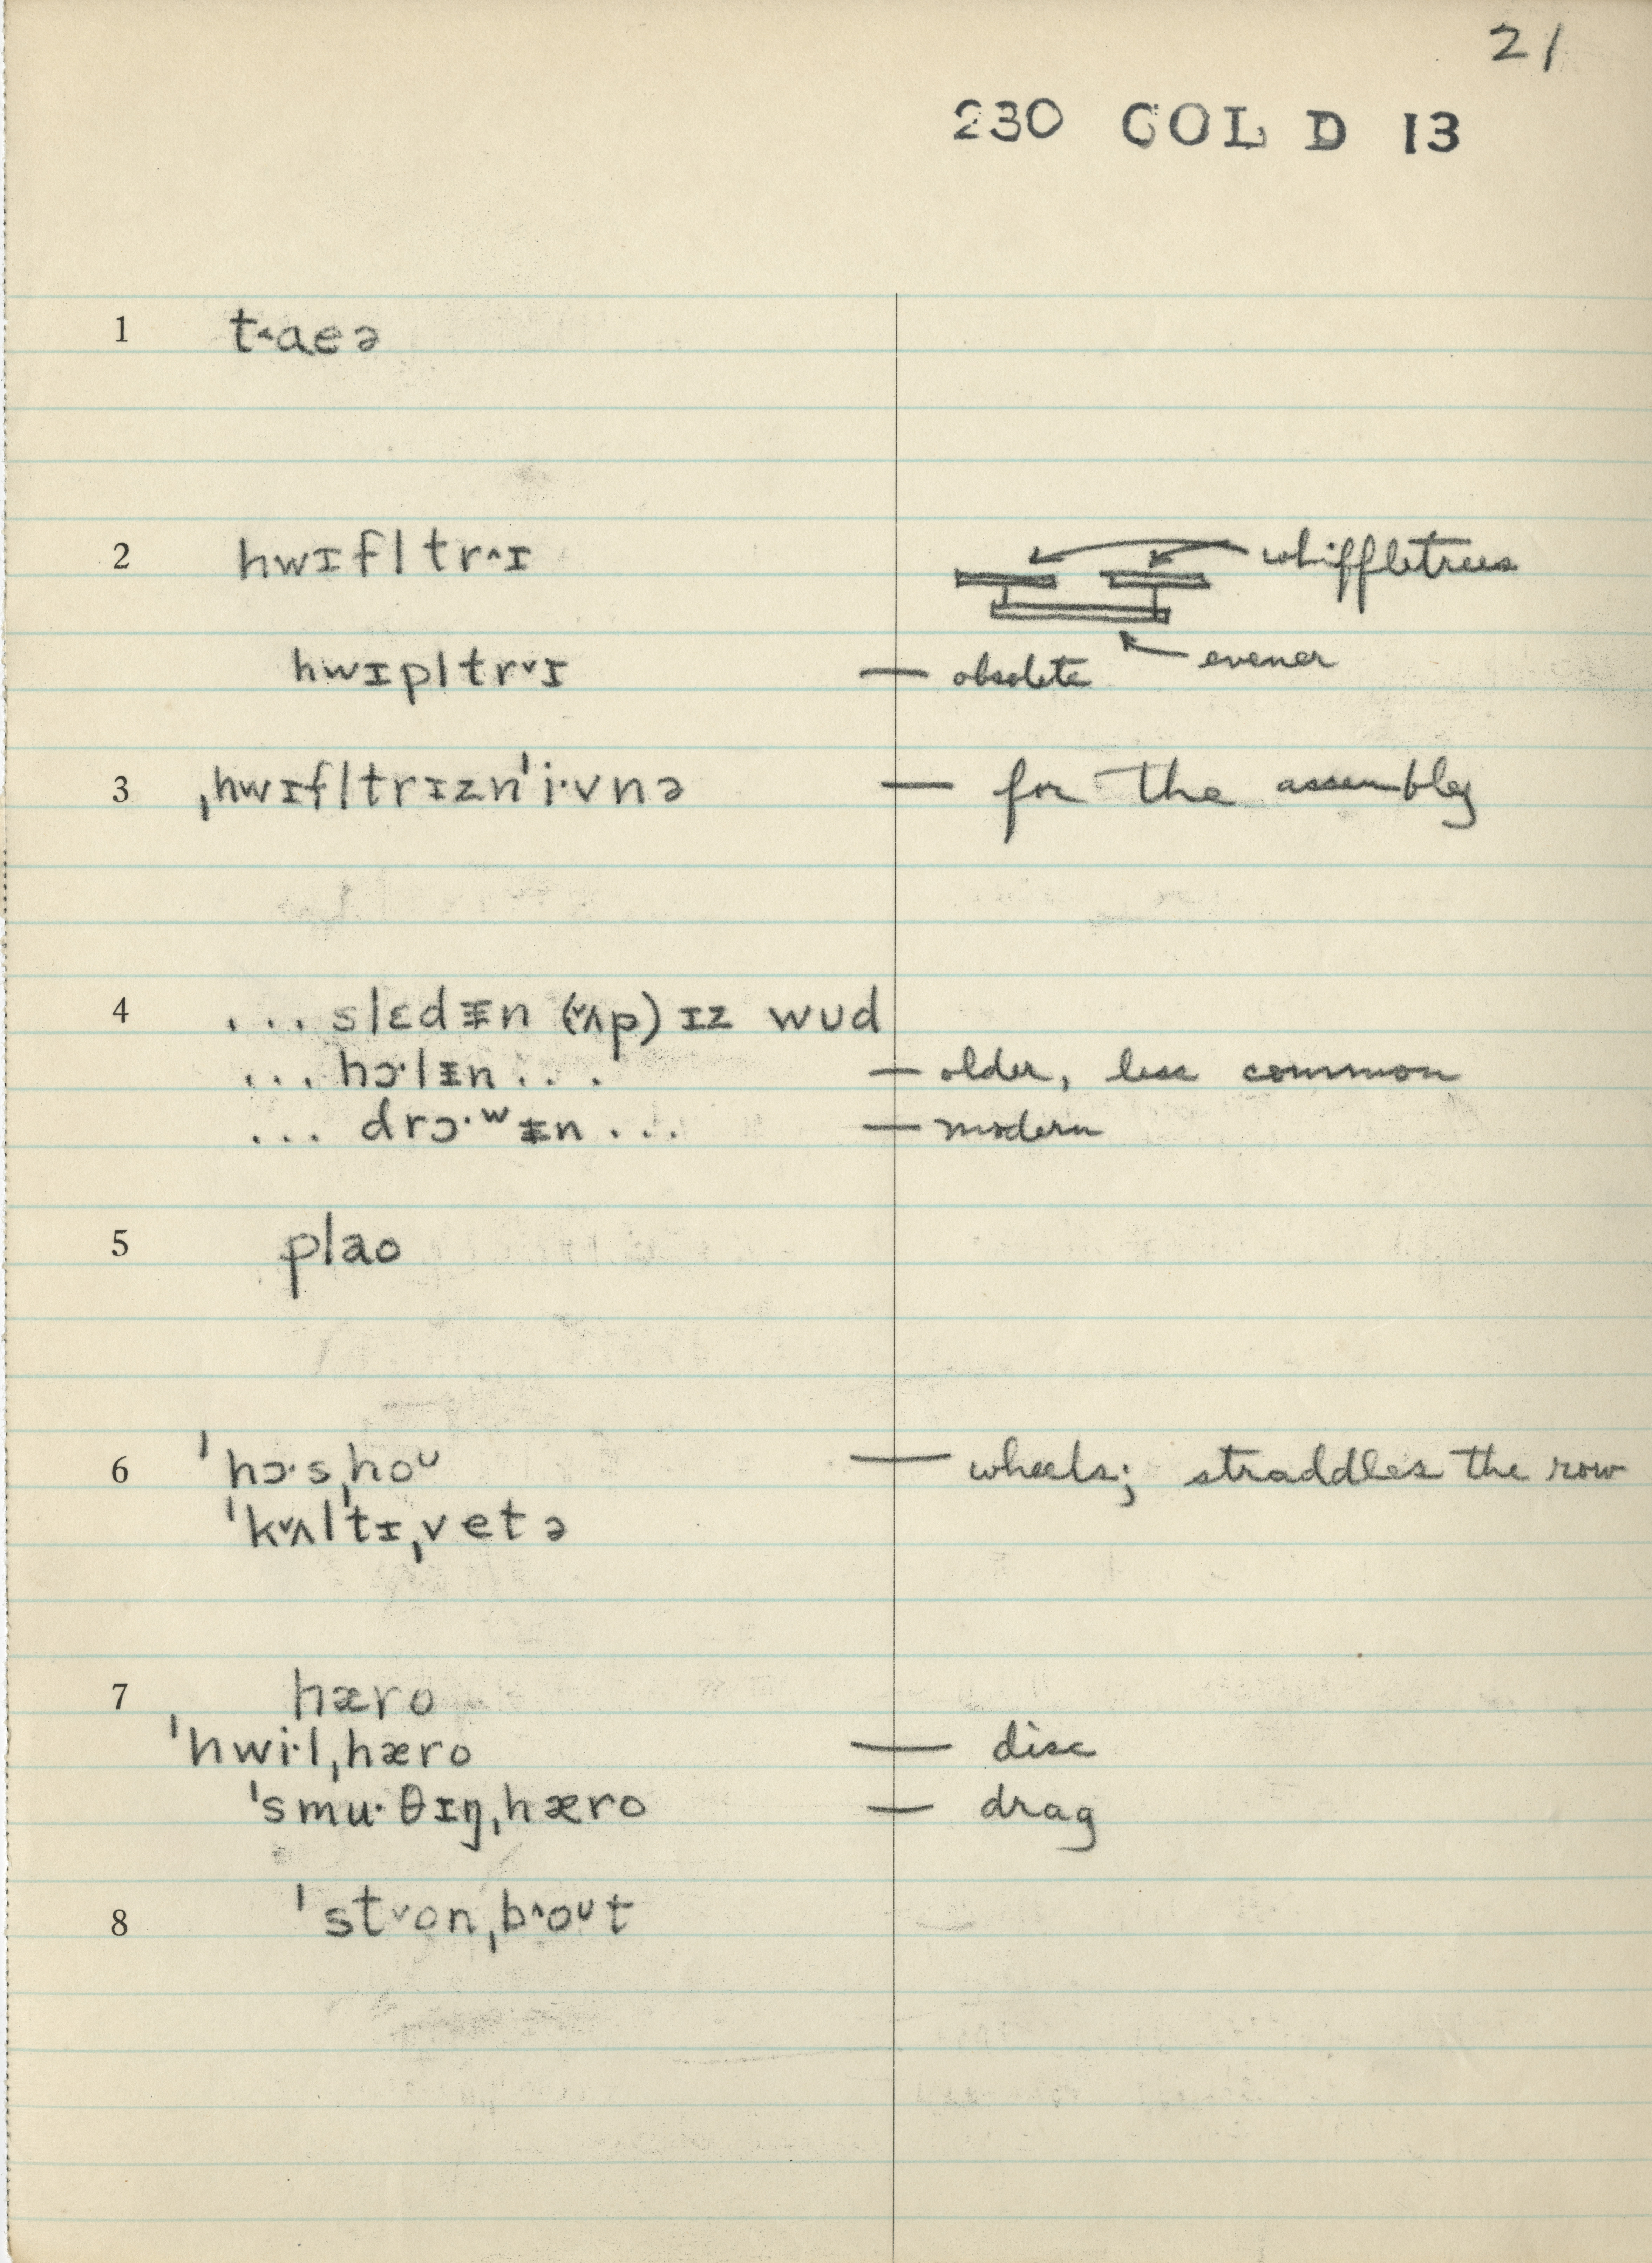 21
230 COL D 13
1 t˰aeə
2 hwɪfltr˄ɪ whiffletrees
hwɪpltr˅ɪ — obsolete evener
3 ˌhwɪfltrɪznˈi·vnə — for the assembly
4 ... slɛdᵻn (˅ʌp) ɪz wʊd
... hɔ·lᵻn ... — older, less common
... drɔ·ʷᵻn ... — modern
5 plao
6 ˈhɔ·sˌhoᶷ — wheels; straddles the row
ˈk˅ʌltɪˌvetə
7 hæro
ˈhwi·lˌhæro — disc
ˈsmu·θɪŋˌhæro — drag
8 ˈst˅onˌb˄oᶷt